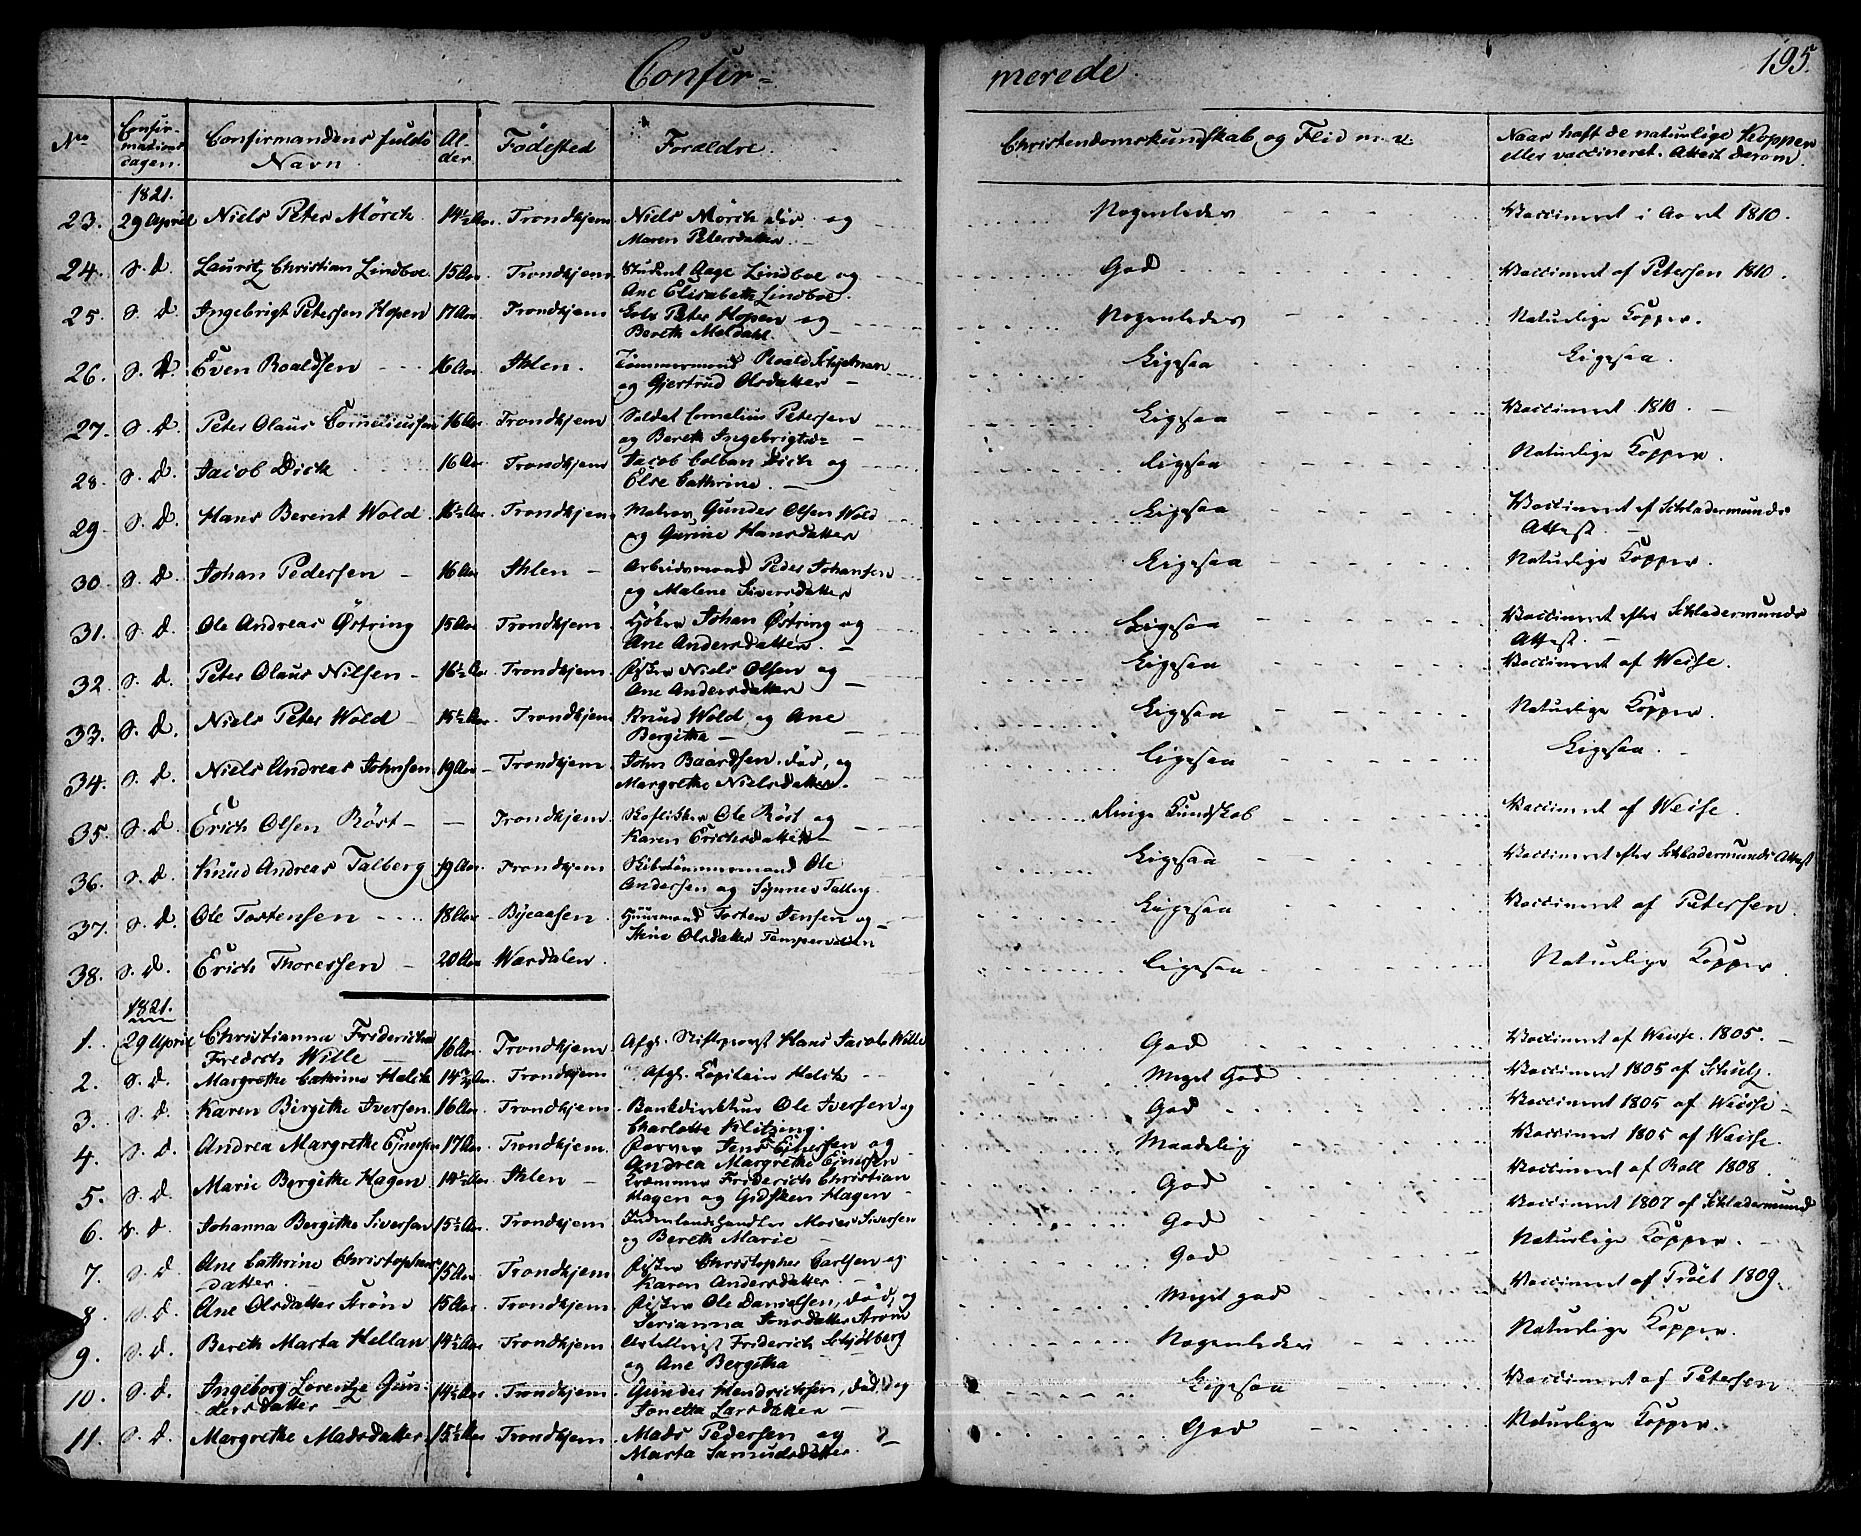 Confir= merede 195.
No Confirmationsdagen. Confirmandens fulde Navn. Alder Fødested Forældre. Christendomskundskab og Flid m. v. Naar haft de naturlige Kopper eller vaccineret. Attest derom.
1821.
23. 29 April Niels Peter Mörch 14½ Aar. Trondhjem Niels Mörch död og Nogenledes Vaccineret i Aaret 1810.
Maren Petersdatter.
24. S. D. Lauritz Christian Lindboe. 15 Aar Trondhjem Student Aage Lindboe og God Vaccineret af Petersen 1810.
Ane Elisabeth Lindboe.
25. S. D. Ingebrigt Petersen Hopen 17 Aar. Trondhjem Peter Hopen og Nogenledes Naturlige Kopper.
Bereth Meldahl.
26. S. D. Even Roaldsen 16 Aar Ihlen. Tömmermand Roald og Gjertrud Olsdatter Ligesaa Ligesaa.
27. S. D. Peter Olaus Corneliussen 16 Aar Trondhjem Soldat Cornelius Petersen Ligesaa Vaccineret 1810.
og Bereth Ingebrigtsd=
28. S. D. Jacob Dick 16 Aar Trondhjem Jacob Colban Dick og Ligesaa Naturlige Kopper.
Else Cathrine.
29. S. D. Hans Berent Wold 16½ Aar. Trondhjem. Gunder Olsen Wold Ligesaa Vaccineret af Schladermunds
og Gurine Hansdatter Attest.
30. S. D. Johan Pedersen 16 Aar Ihlen Arbeidsmand Peder Johansen Ligesaa Naturlige Kopper.
og Malene Siversdatter
31. S. D. Ole Andreas Østring 15 Aar Trondhjem. Höker Johan Østring og Ligesaa Vaccineret efter Schladermunds
Ane Andersdatter. Attest.
32. S. D. Peter Olaus Nilsen 16½ Aar Trondhjem. Fisker Niels Olsen og Ligesaa Vaccineret af Weise.
Ane Andersdatter
33. S. D. Niels Peter Wold 15½ Aar. Trondhjem Knud Wold og Ane Ligesaa Naturlige Kopper.
Bergitha
34. S. D. Niels Andreas Johnsen 19 Aar Trondhjem John Baardsen, död, og Ligesaa Ligesaa.
Margrethe Nielsdatter.
35. S. D. Erich Olsen Röst Trondhjem. Ole Röst og Ringe Kundskab Vaccineret af Weise.
Karen Erichsdatter
36. S. D. Knud Andreas Talberg 19 Aar. Trondhjem Skibstömmermand Ole Ligesaa Vaccineret efter Schladermunds Attest
Andersen og Synnev Talberg.
37. S. D. Ole Tostensen 18 Aar Byeaasen. Huusmand Tosten Jensen og Ligesaa Vaccineret af Petersen.
Stine Olsdatter Tempervolden
38. S. D. Erich Thoressen 20 Aar Wærdalen. Ligesaa Naturlige Kopper.
1821.
1. 29 April Christianna Fridericha 16 Aar. Trondhjem Afg. Stiftsprovst Hans Jacob Wille God Vaccineret af Weise. 1805.
Fredich Wille
2. S. D. Margrethe Cathrine Holck 14 Aar. Trondhjem Afg. Capitain Holck Meget God Vaccineret 1805 af Schulz.
3. S. D. Karen Birgithe Iversen. 16 Aar. Trondhjem Bankdirekteur Ole Iversen og God Vaccineret 1805 af Weisse
Charlotte Klitzing.
4. S. D. Andrea Margrethe Ejnersen 17 Aar. Trondhjem. Jens Ejnersen og Maadelig Vaccineret 1805 af Weisse.
Andrea Margrethe Ejnersen
5. S. D. Marie Bergithe Hagen 14½ Aar. Ihlen Kræmmer Friderich Christian God Vaccineret af Roll 1808.
Hagen og Gidsken Hagen
6. S. D. Johanna Bergithe Siversen 15½ Aar. Trondhjem Indenlandshandler Moses Siversen God Vaccineret 1807 af Schladermund
og Bereth Marie
7. S. D. Ane Cathrine Christophers- 15 Aar. Trondhjem Fisker Christopher Carlsen og God Naturlige Kopper.
datter. Karen Andersdatter
8. S. D. Ane Olsdatter Ström 15 Aar. Trondhjem Fisker Ole Danielsen, död, og Meget god Vaccineret af Tröet 1809.
Serianna Jonsdatter Ström
9. S. D. Bereth Marta Hellan 14½ Aar. Trondhjem. Artillerist Friderich Schjølberg Nogenledes Naturlige Kopper.
og Ane Bergitha
10. S. D. Ingeborg Lorentze Gun- 14½ Aar. Trondhjem. Gunder Hendrichsen, död, og Ligesaa Vaccineret af Petersen
dersdatter Jonetta Larsdatter
11. S. D. Margrethe Madsdatter 15½ Aar. Trondhjem. Mads Pedersen og God Naturlige Kopper.
Marta Samuelsdatter.